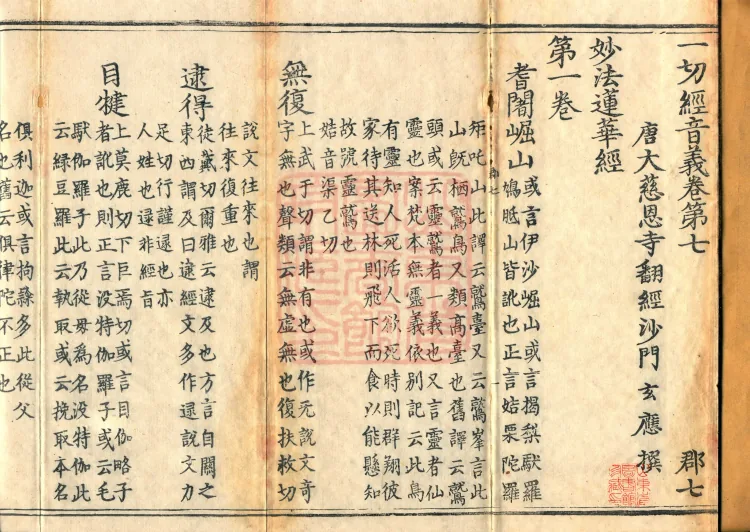 一切經音義卷第七 郡七
唐大慈恩寺翻經沙門玄應撰
妙法蓮華經
第一卷
耆闍崛山或言伊沙崛山或言揭梨馱羅
鳩胝山皆訛也正言姞栗陀羅
矩吒山此譯云鷲臺又云鷲峯言此
山旣栖鷲鳥又類高臺也舊譯云鷲
頭或云靈鷲者一義也又言靈者仙
靈也案梵本無靈義依别記云此鳥
有靈知人死活人欲死時則群翔彼
家待其送林則飛下而食以能懸知
故號靈鷲也
姞音渠乙切
無復上武于切謂非有也或作无說文奇
字無也聲類云無虛無也復扶救切
說文往來也謂
往來復重也
逮得徒戴切爾雅云逮及也方言自關之
東西謂及曰逮經文多作逯說文力
足切行謹逯也亦
人姓也逯非經旨
目犍上莫鹿切下巨焉切或言目伽略子
者訛也則正言没特伽羅子或云毛
馱伽羅子此乃從母爲名没特伽此
云緑豆羅此云執取或云挽取本名
俱利迦或言拘㝹多此從父
名也舊云俱律陀不正也